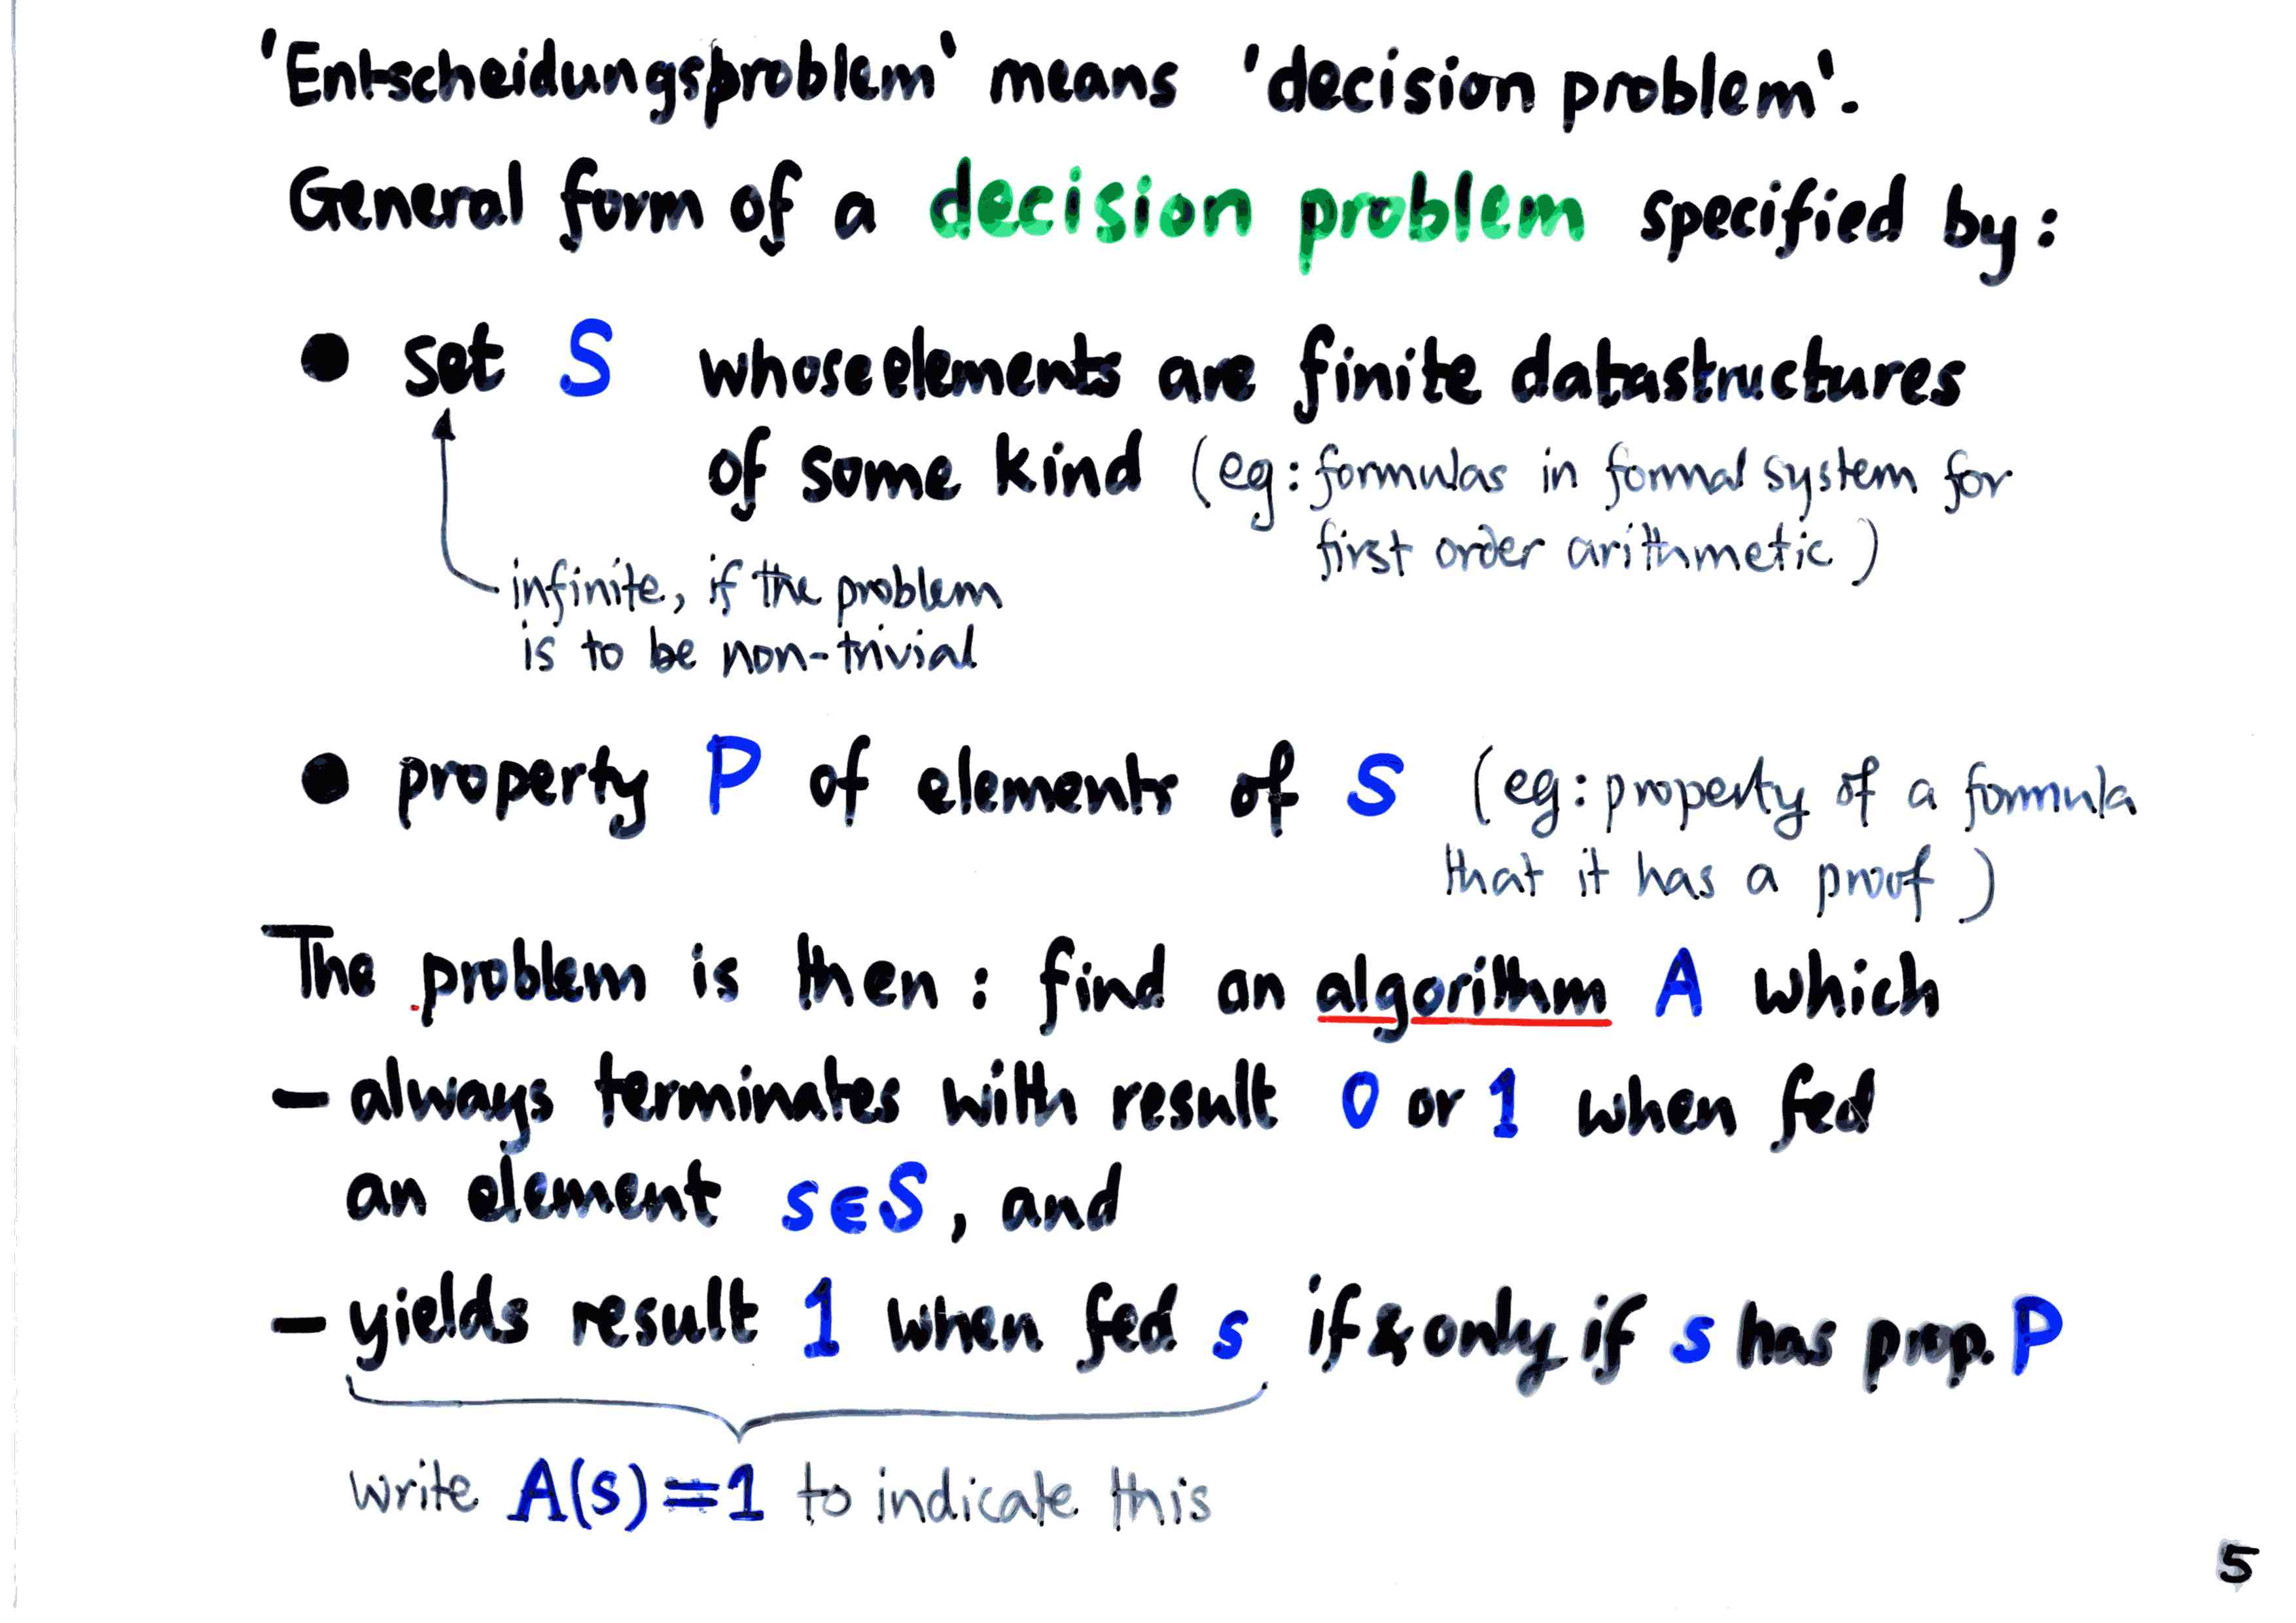 'Entscheidungsproblem' means 'decision problem'.
General form of a decision problem specified by:
● set S whose elements are finite datastructures
of some kind (eg: formulas in formal system for
first order arithmetic)
infinite, if the problem
is to be non-trivial
● property P of elements of S (eg: property of a formula
that it has a proof)
The problem is then: find an algorithm A which
– always terminates with result 0 or 1 when fed
an element s∈S, and
– yields result 1 when fed s if & only if s has prop. P
write A(s)=1 to indicate this
5